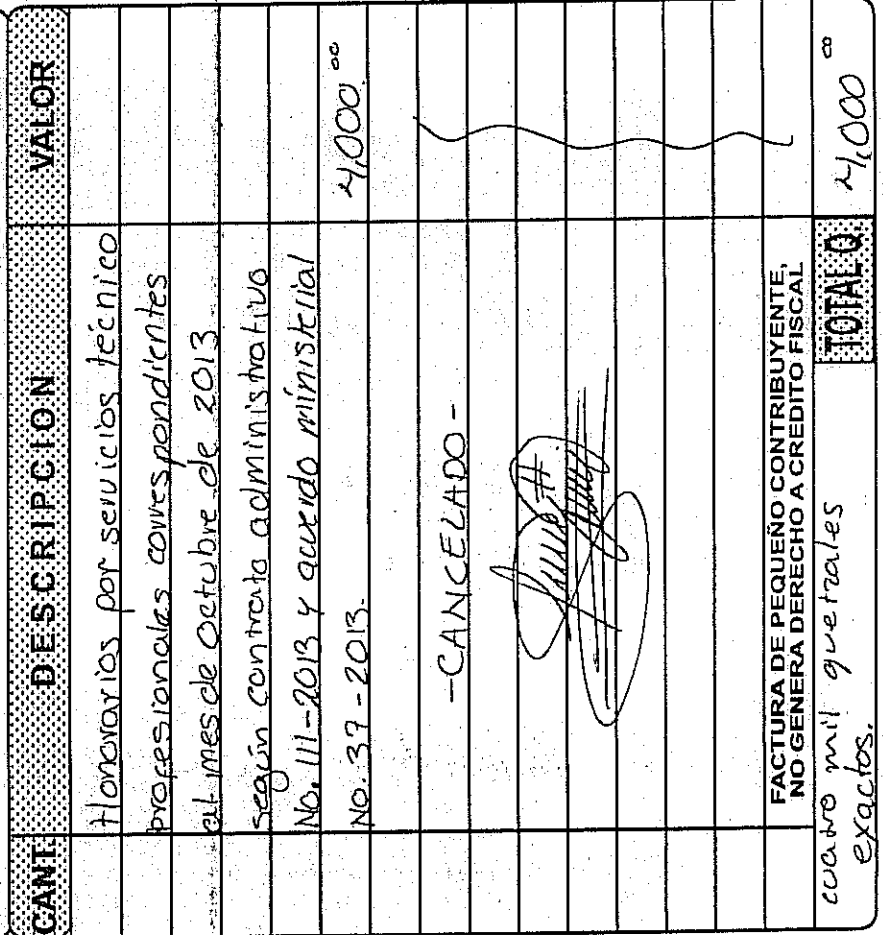 CANT. DESCRIPCION VALOR
Honorarios por servicios técnico
profesionales correspondientes
al mes de Octubre de 2013
según contrato administrativo
No. 111-2013 y acuerdo ministerial
No. 37-2013. 4,000.00
-CANCELADO-
FACTURA DE PEQUEÑO CONTRIBUYENTE,
NO GENERA DERECHO A CREDITO FISCAL
cuatro mil quetzales
exactos.
TOTAL Q. 4,000 00